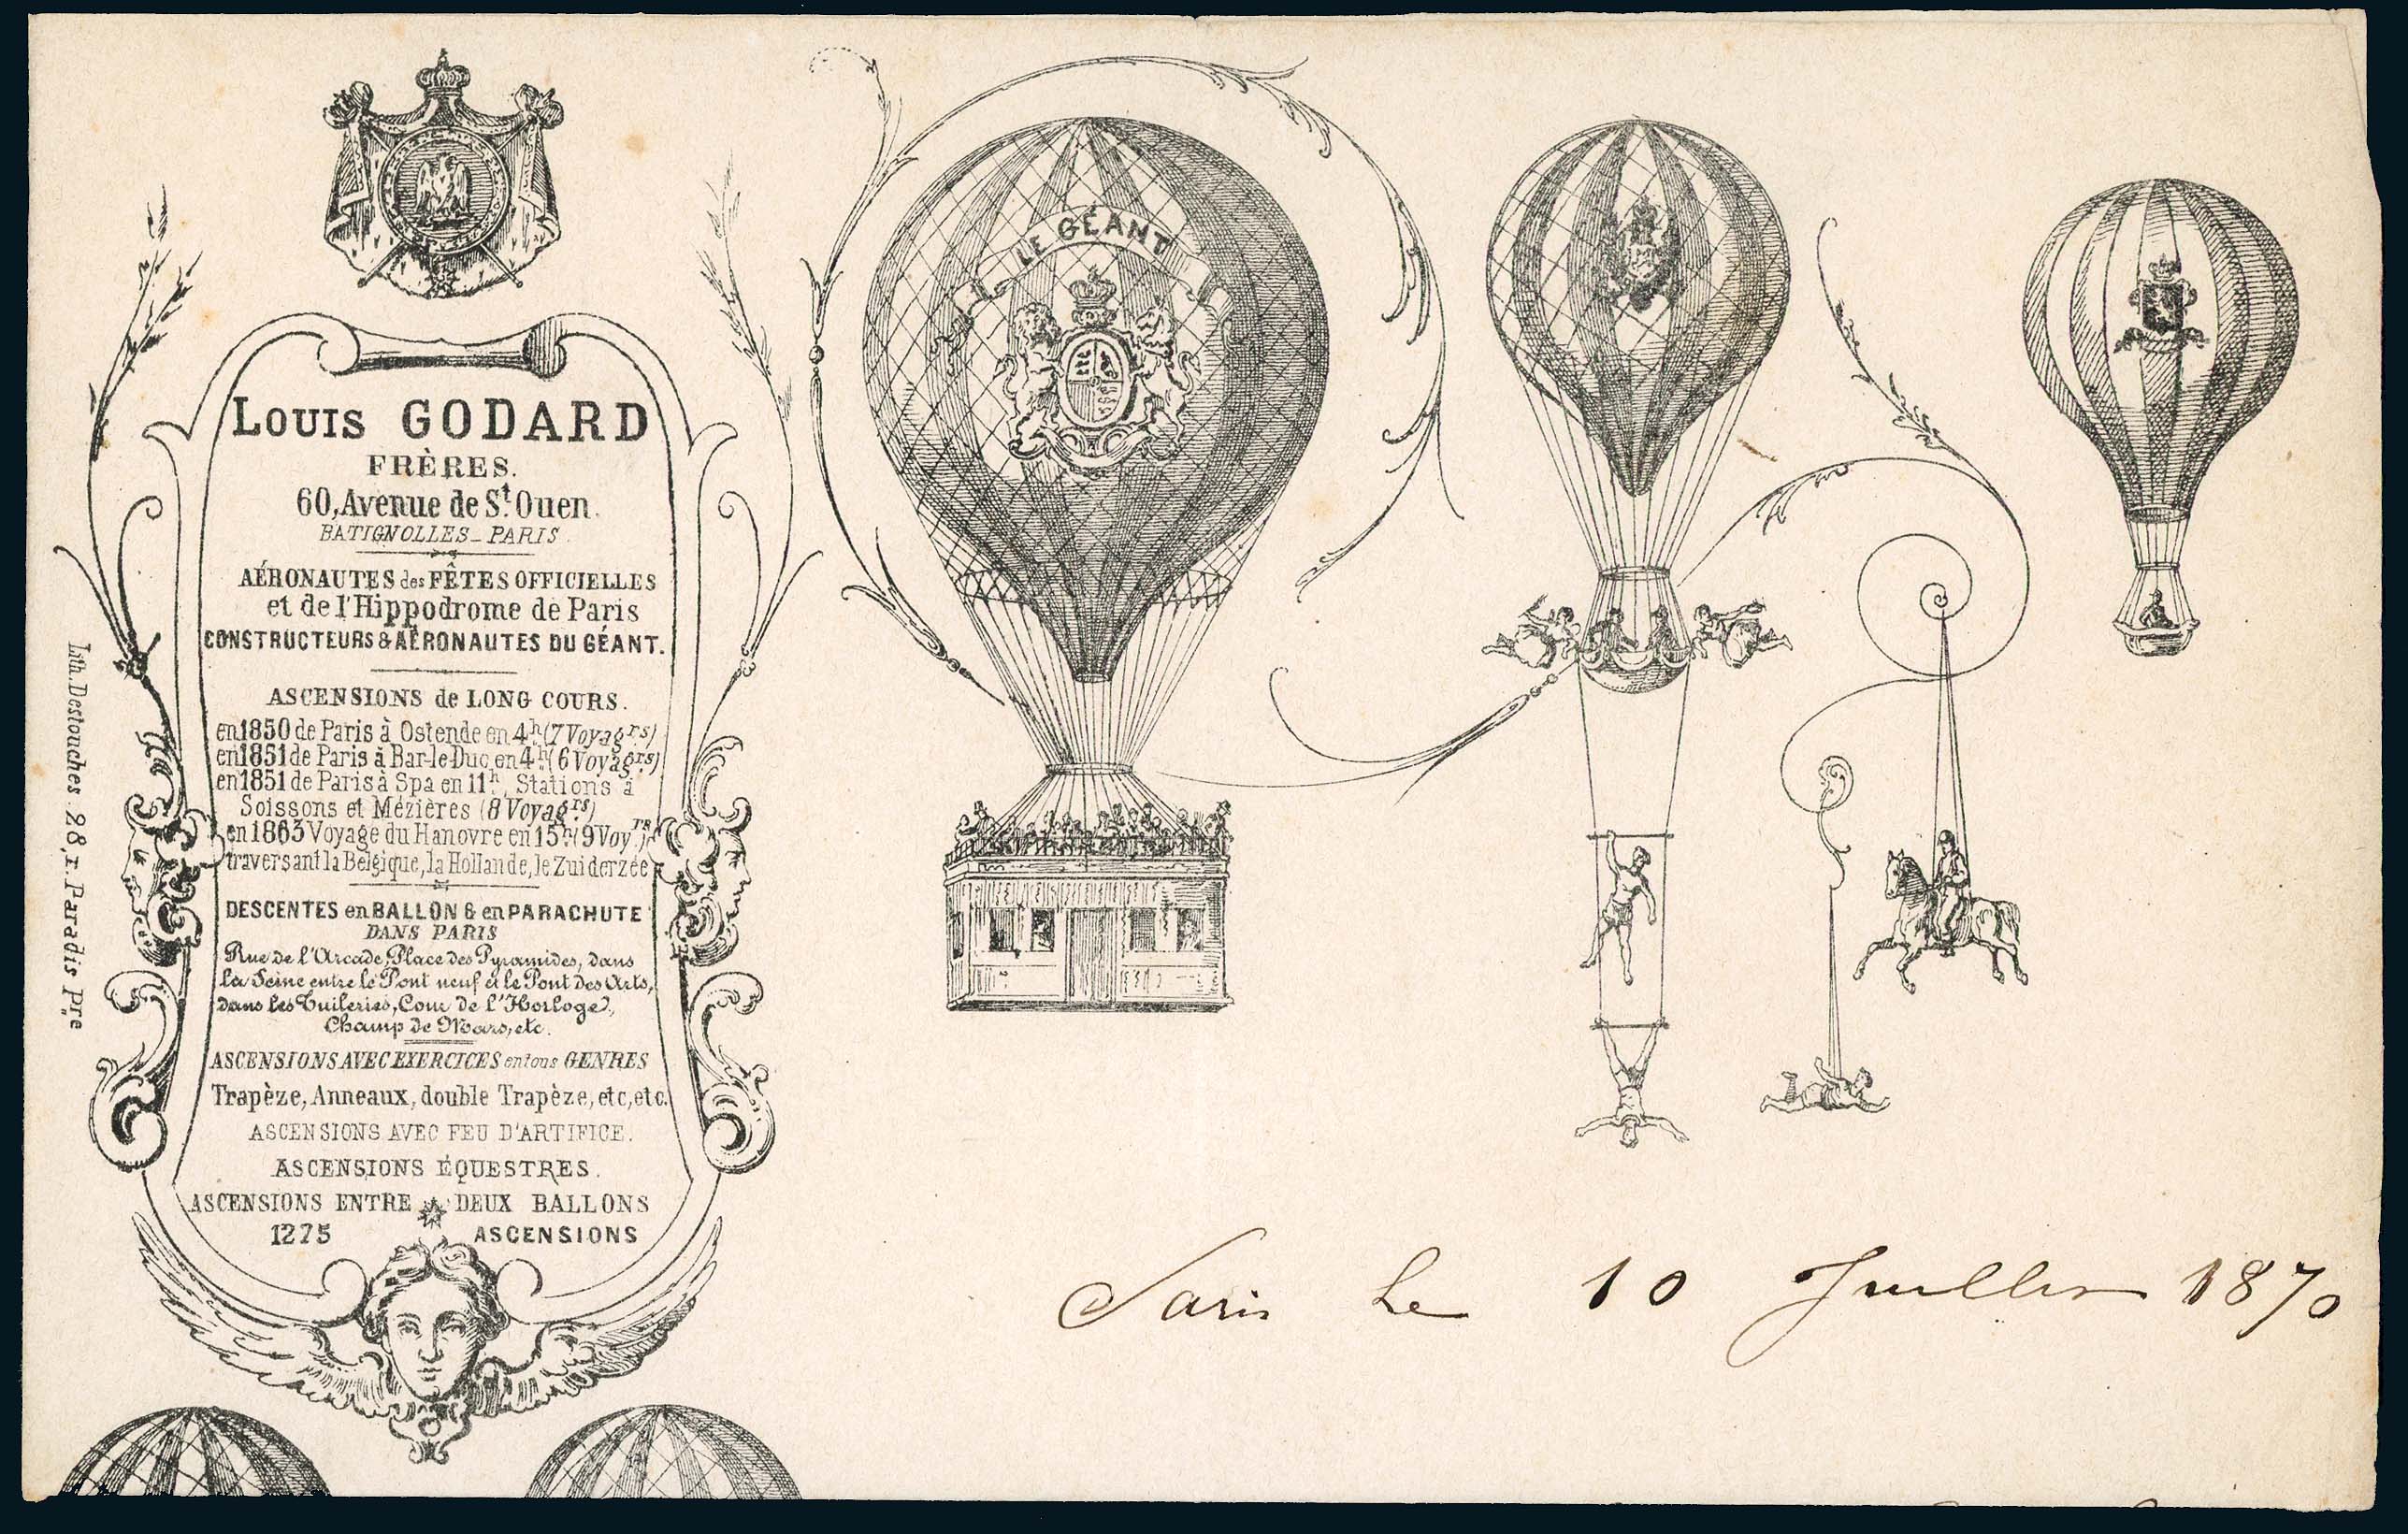 Louis GODARD
FRÈRES.
60, Avenue de St. Ouen.
BATIGNOLLES_PARIS.
AÉRONAUTES des FÊTES OFFICIELLES
et de l'Hippodrome de Paris
CONSTRUCTEURS & AÉRONAUTES DU GÉANT.
ASCENSIONS de LONG COURS.
en 1850 de Paris à Ostende en 4h. (7 Voyagrs)
en 1851 de Paris à Bar-le-Duc en 4h. (6 Voyagrs)
en 1851 de Paris à Spa en 11h, Stations à
Soissons et Mézières (8 Voyagrs)
en 1863 Voyage du Hanovre en 15h. (9 Voyrs)
traversant la Belgique, la Hollande, le Zuiderzée
DESCENTES en BALLON & en PARACHUTE
DANS PARIS
Rue de l'Arcade, Place des Pyramides, dans
la Seine entre le Pont neuf et le Pont des Arts,
dans les Tuileries, Cour de l'Horloge,
Champ de Mars, etc.
ASCENSIONS AVEC EXERCICES en tous GENRES
Trapèze, Anneaux, double Trapèze, etc, etc.
ASCENSIONS AVEC FEU D'ARTIFICE.
ASCENSIONS ÉQUESTRES.
ASCENSIONS ENTRE DEUX BALLONS
1275 ASCENSIONS
Lith. Destouches. 28, r. Paradis Pre
LE GÉANT
Paris le 10 Juillet 1870